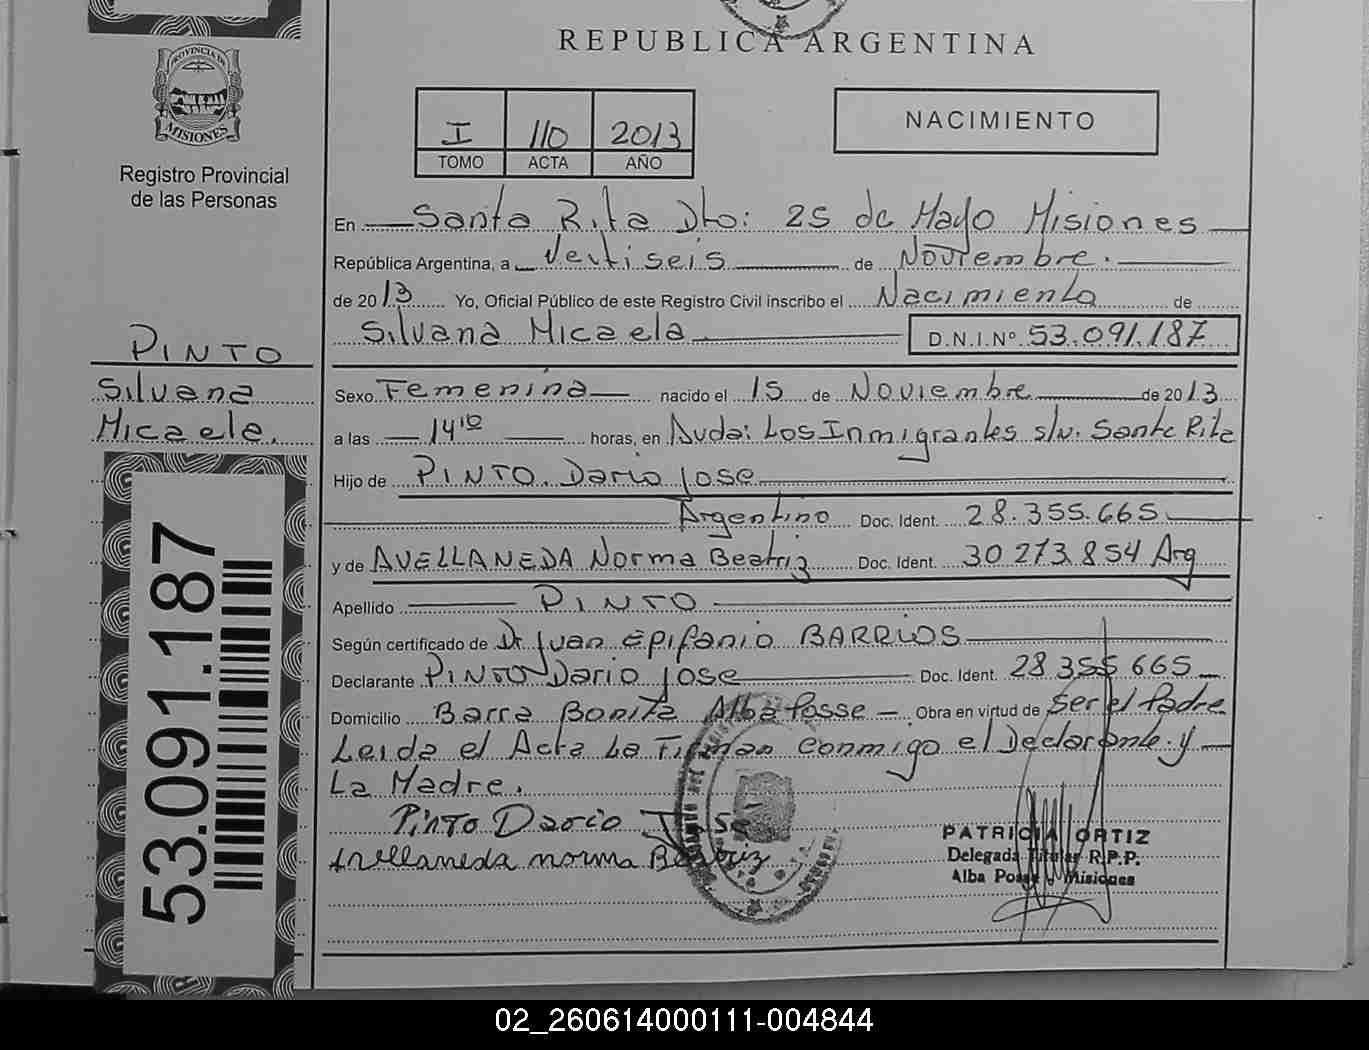 PROVINCIA DE
MISIONES
Registro Provincial
de las Personas
PINTO
Silvana
Micaela.
53.091.187
REPUBLICA ARGENTINA
I 110 2013
TOMO ACTA AÑO
NACIMIENTO
En Santa Rita Dto: 25 de Mayo Misiones
República Argentina, a Veitiseis de Noviembre.
de 2013 Yo, Oficial Público de este Registro Civil inscribo el Nacimiento de
Silvana Micaela D.N.I.Nº 53.091.187
Sexo Femenina nacido el 15 de Noviembre de 2013
a las 14 10 horas, en Avda: Los Inmigrantes s/n. Santa Rita
Hijo de PINTO. Dario Jose
Argentino Doc. Ident. 28.355.665
y de AVELLANEDA Norma Beatriz Doc. Ident. 30 273.854 Arg
Apellido PINTO
Según certificado de Dr Juan Epifanio BARRIOS
Declarante PINTO Dario Jose Doc. Ident. 28 355 665
Domicilio Barra Bonita Alba Posse - Obra en virtud de Ser el Padre
Leida el Acta La Firman Conmigo el Declarante. y
La Madre.
Pinto Dario Jose
Avellaneda norma Beatriz
PATRICIA ORTIZ
Delegada Titular R.P.P.
Alba Posse - Misiones
02_260614000111-004844